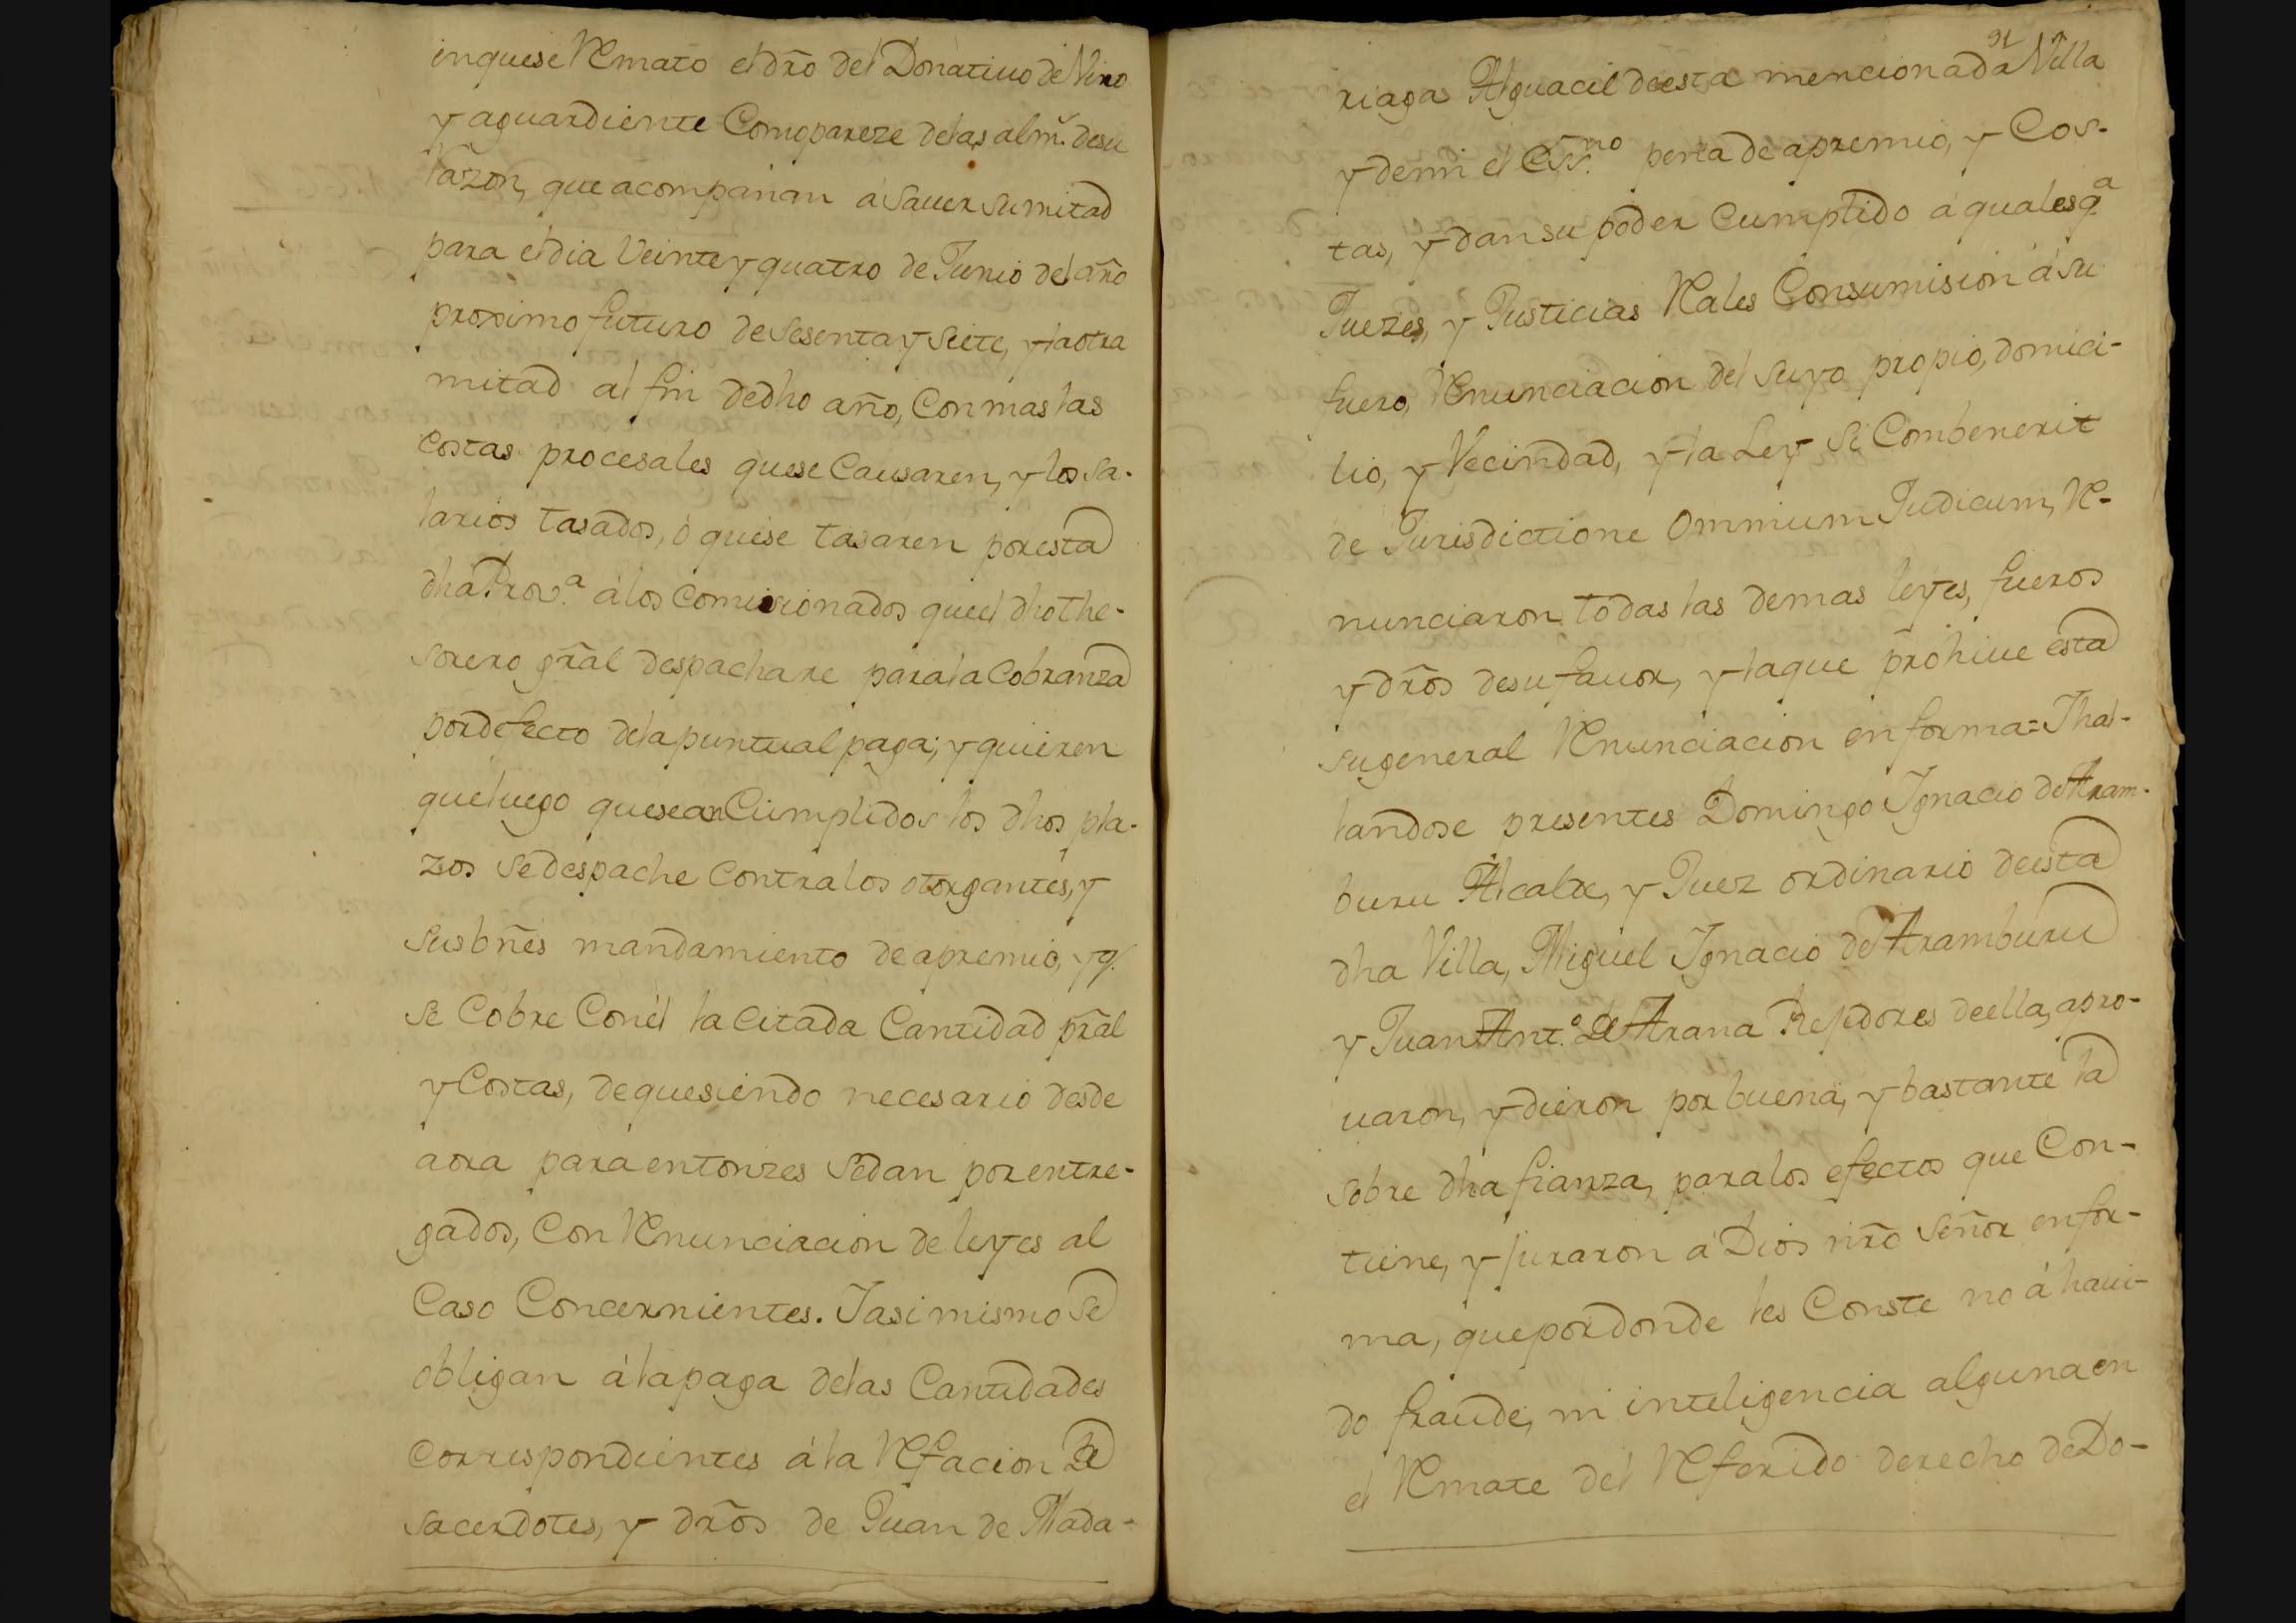 inquese Remato el dr̃o del Donativo de Vino
y aguardiente Como pareze delas alm.s desu
razon, que acompañan á Saver su mitad
para el dia Veinte y quatro de Junio del año
proximo futuro de Sesenta y Siete, y la otra
mitad al fin de dho año, Con mas las
Costas procesales quese Causaren, y los Sa-
larios tasados, ó quese tasaren por esta
dha Prov.a á los Comisionados que el dho The-
sorero gr̃al despachare para la Cobranza
por defecto dela puntual paga; y quieren
que luego que sean Cumplidos los dhos pla-
zos se despache Contra los otorgantes, y
sus bn̄es mandamiento de apremio, y q.
se Cobre Con él la Citada Cantidad pr̃al
y Costas, de que siendo necesario desde
aora para entonzes se dan por entre-
gados, Con Renunciacion de leyes al
Caso Concernientes. Y asi mismo se
obligan á la paga delas Cantidades
Correspondientes á la Refacion de
sacerdotes, y dr̃os de Juan de Mada-
91
riaga Alguacil de esta mencionada Villa
y demi el Ess.no pena de apremio, y Cos-
tas, y dan su poder Cumplido á qualesq.a
Juezes, y Justicias Rales Con sumision á su
fuero, Renunciacion del suyo propio, domici-
lio, y Vecindad, y la Ley Si Combenerit
de Jurisdictione Omnium Judicum, Re-
nunciaron todas las demas leyes, fueros
y dr̃os de su favor, y la que prohive esta
su general Renunciacion en forma = Y hal-
landose presentes Domingo Ignacio de Aram-
buru Alcalde, y Juez ordinario de esta
dha Villa, Miguel Ignacio de Aramburu
y Juan Ant.o de Arana Rejidores de ella, apro-
uaron, y dieron por buena, y bastante la
sobre dha fianza, para los efectos que Con-
tiene, y juraron á Dios nr̃o Señor en for-
ma, que por donde les Conste no á havi-
do fraude, ni inteligencia alguna en
el Remate del Referido derecho de Do-